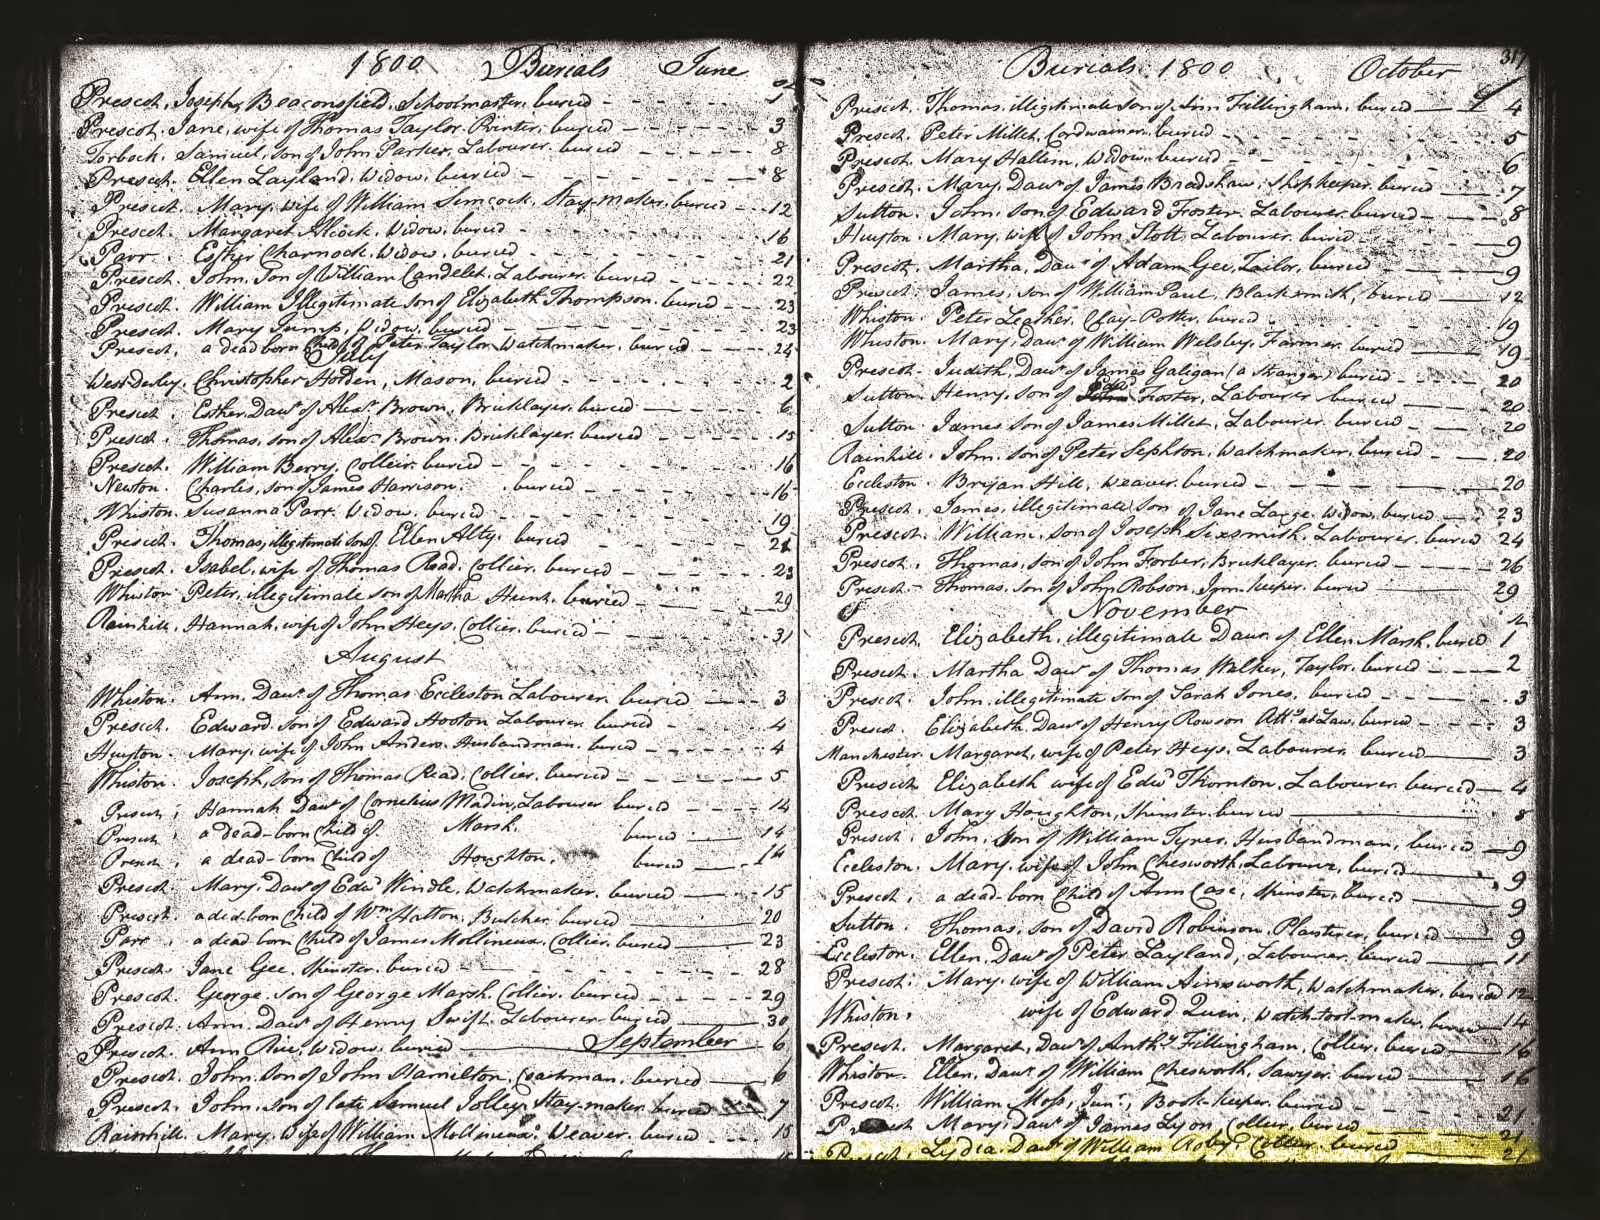 1800 Burials June
Prescot. Joseph Beaconsfield. Schoolmaster. buried 1
Prescot. Jane, wife of Thomas Taylor. Printer. buried 3
Torbock. Samuel, son of John Parker. Labourer. buried 8
Prescot. Ellen Layland. Widow. buried 8
Prescot. Mary. wife of William Simcock. Stay-maker. buried 12
Prescot. Margaret Alcock. Widow. buried 16
Parr. Esther Charnock. Widow. buried 21
Prescot. John. Son of William Candelet. Labourer. buried 22
Prescot. William Illegitimate son of Elizabeth Thompson. buried 23
Prescot. Mary Jump. Widow. buried 23
Prescot. a dead born Child of Peter Taylor Watchmaker. buried 24
July
West-Derby. Christopher Holden, Mason. buried 2
Prescot. Esther. Daur. of Alexr. Brown. Bricklayer. buried 6
Prescot. Thomas. son of Alexr. Brown. Bricklayer. buried 15
Prescot. William Berry. Collier. buried 16
Newton. Charles, son of James Harrison. buried 16
Whiston. Susanna Parr. Widow. buried 19
Prescot. Thomas, illegitimate son of Ellen Alty. buried 21
Prescot. Isabel. wife of Thomas Read. Collier. buried 23
Whiston Peter. illegitimate son of Martha Hunt. buried 29
Rainhill. Hannah. wife of John Heys. Collier. buried 31
August
Whiston. Ann. Daur. of Thomas Eccleston Labourer. buried 3
Prescot. Edward. son of Edward Hooton Labourer. buried 4
Huyton. Mary. wife of John Anders. Husbandman. buried 4
Whiston. Joseph, son of Thomas Read. Collier. buried 5
Prescot; Hannah Daur. of Cornelius Madin, Labourer buried 14
Prescot; a dead-born Child of Marsh. buried 14
Prescot; a dead-born Child of Houghton. buried 14
Prescot. Mary. Daur. of Edwd. Windle. Watchmaker. buried 15
Prescot. a ded-born Child of Wm. Hatton. Butcher. buried 20
Parr. a dead-born Child of James Mollineux. Collier. buried 23
Prescot. Jane Gee. Spinster. buried 28
Prescot. George. son of George Marsh. Collier. buried 29
Prescot. Ann. Daur. of Henry Swift. Labourer. buried 30
September
Prescot. Ann Rice. Widow. buried 6
Prescot. John. Son of John Hamilton. Coachman. buried 6
Prescot. John. son of late Samuel Jolley. Stay-maker. buried 7
Rainhill. Mary. wife of William Mollineux. Weaver. buried 15
317
Burials 1800 October
Prescot. Thomas. illegitimate son of Ann Fillingham. buried 4
Prescot. Peter Millet. Cordwainer. buried 5
Prescot. Mary Hallem. Widow. buried 6
Prescot. Mary. Daur. of James Bradshaw. Shopkeeper. buried 7
Sutton. John. son of Edward Froster. Labourer. buried 8
Huyton. Mary. wife of John Stott. Labourer. buried 9
Prescot. Martha. Daur. of Adam Gee. Tailor. buried 9
Prescot. James, son of William Paul. Blacksmith, buried 12
Whiston. Peter Leather. Clay-Potter. buried 19
Whiston. Mary. Daur. of William Welsby. Farmer. buried 19
Prescot. Judith. Daur. of James Galigan (a Stranger) buried 20
Sutton. Henry. son of Edwd Froster, Labourer buried 20
Sutton. James son of James Millet. Labourer. buried 20
Rainhill. John. son of Peter Sephton. Watchmaker. buried 20
Eccleston. Bryan Hill. Weaver. buried 20
Prescot. James, illegitimate son of Jane Large. Widow. buried 23
Prescot. William. son of Joseph Sixsmith. Labourer. buried 24
Prescot. Thomas. son of John Forber. Bricklayer. buried 26
Prescot. Thomas. son of John Robson. Inn-keeper. buried 29
November
Prescot. Elizabeth. illegitimate Daur. of Ellen Marsh. buried 1
Prescot. Martha Daur. of Thomas Walker, Taylor. buried 2
Prescot. John. illegitimate son of Sarah Jones. buried 3
Prescot. Elizabeth. Daur. of Henry Rowson Atty. at Law. buried 3
Manchester. Margaret, wife of Peter Heys. Labourer. buried 3
Prescot Elizabeth wife of Edwd. Thornton. Labourer. buried 4
Prescot. Mary Houghton. Spinster. buried 8
Prescot. John, Son of William Tyrer. Husbandman, buried 9
Eccleston. Mary. wife of John Chesworth. Labourer, buried 9
Prescot. a dead-born Child of Ann Case, Spinster, buried 9
Sutton. Thomas. son of David Robinson. Plaisterer, buried 9
Eccleston. Ellen. Daur. of Peter Layland, Labourer. buried 11
Prescot. Mary. wife of William Ainsworth, Watchmaker, buried 12
Whiston. wife of Edward Quin. Watch-tool-maker. buried 14
Prescot. Margaret, Daur. of Anthy. Fillingham. Collier. buried 16
Whiston. Ellen. Daur. of William Chesworth. Sawyer. buried 16
Prescot. William Moss, Junr., Book-keeper. buried 21
Prescot Mary, Daur. of James Lyon, Collier, buried 21
Prescot. Lydia. Daur. of William Roby. Collier. buried 21